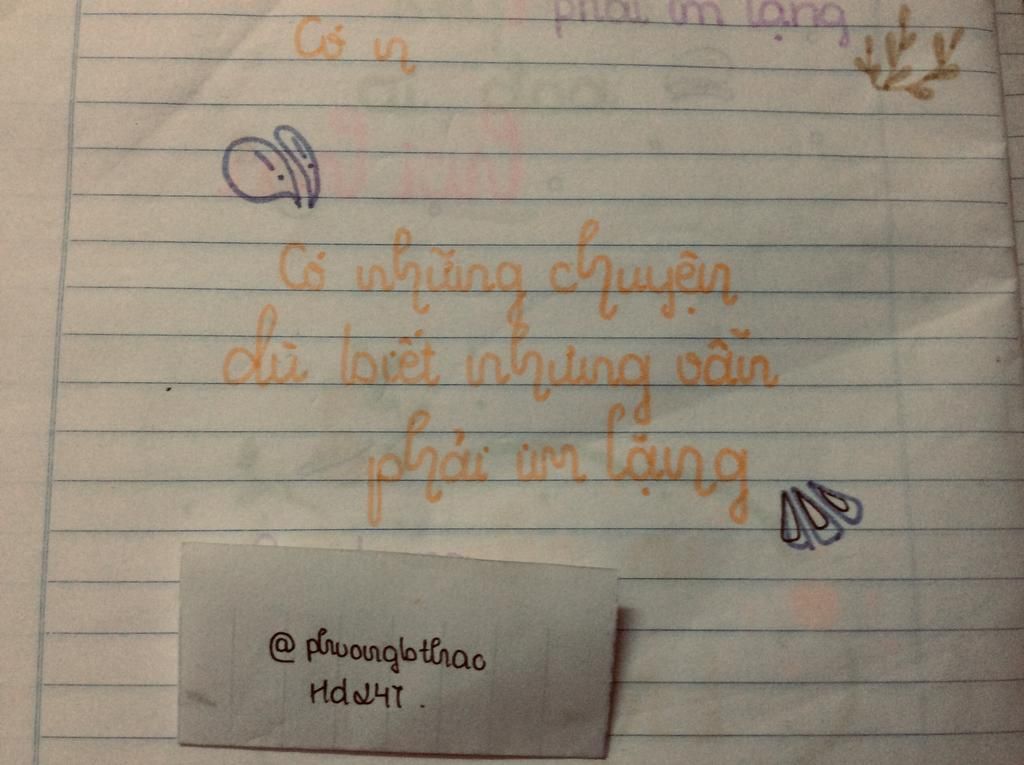 phải im lặng
Có n
Có những chuyện
dù biết nhưng vẫn
phải im lặng
@ phuongbthao
Hd247.